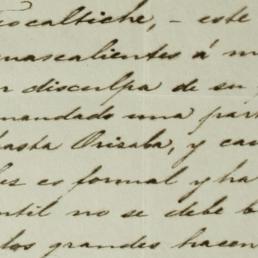 ocaltiche, - este
uascalientes á m
r disculpa de su
mandado una part
hasta Orisaba, y ca
es es formal y ha
ntil no se debe b
los grandes hacen